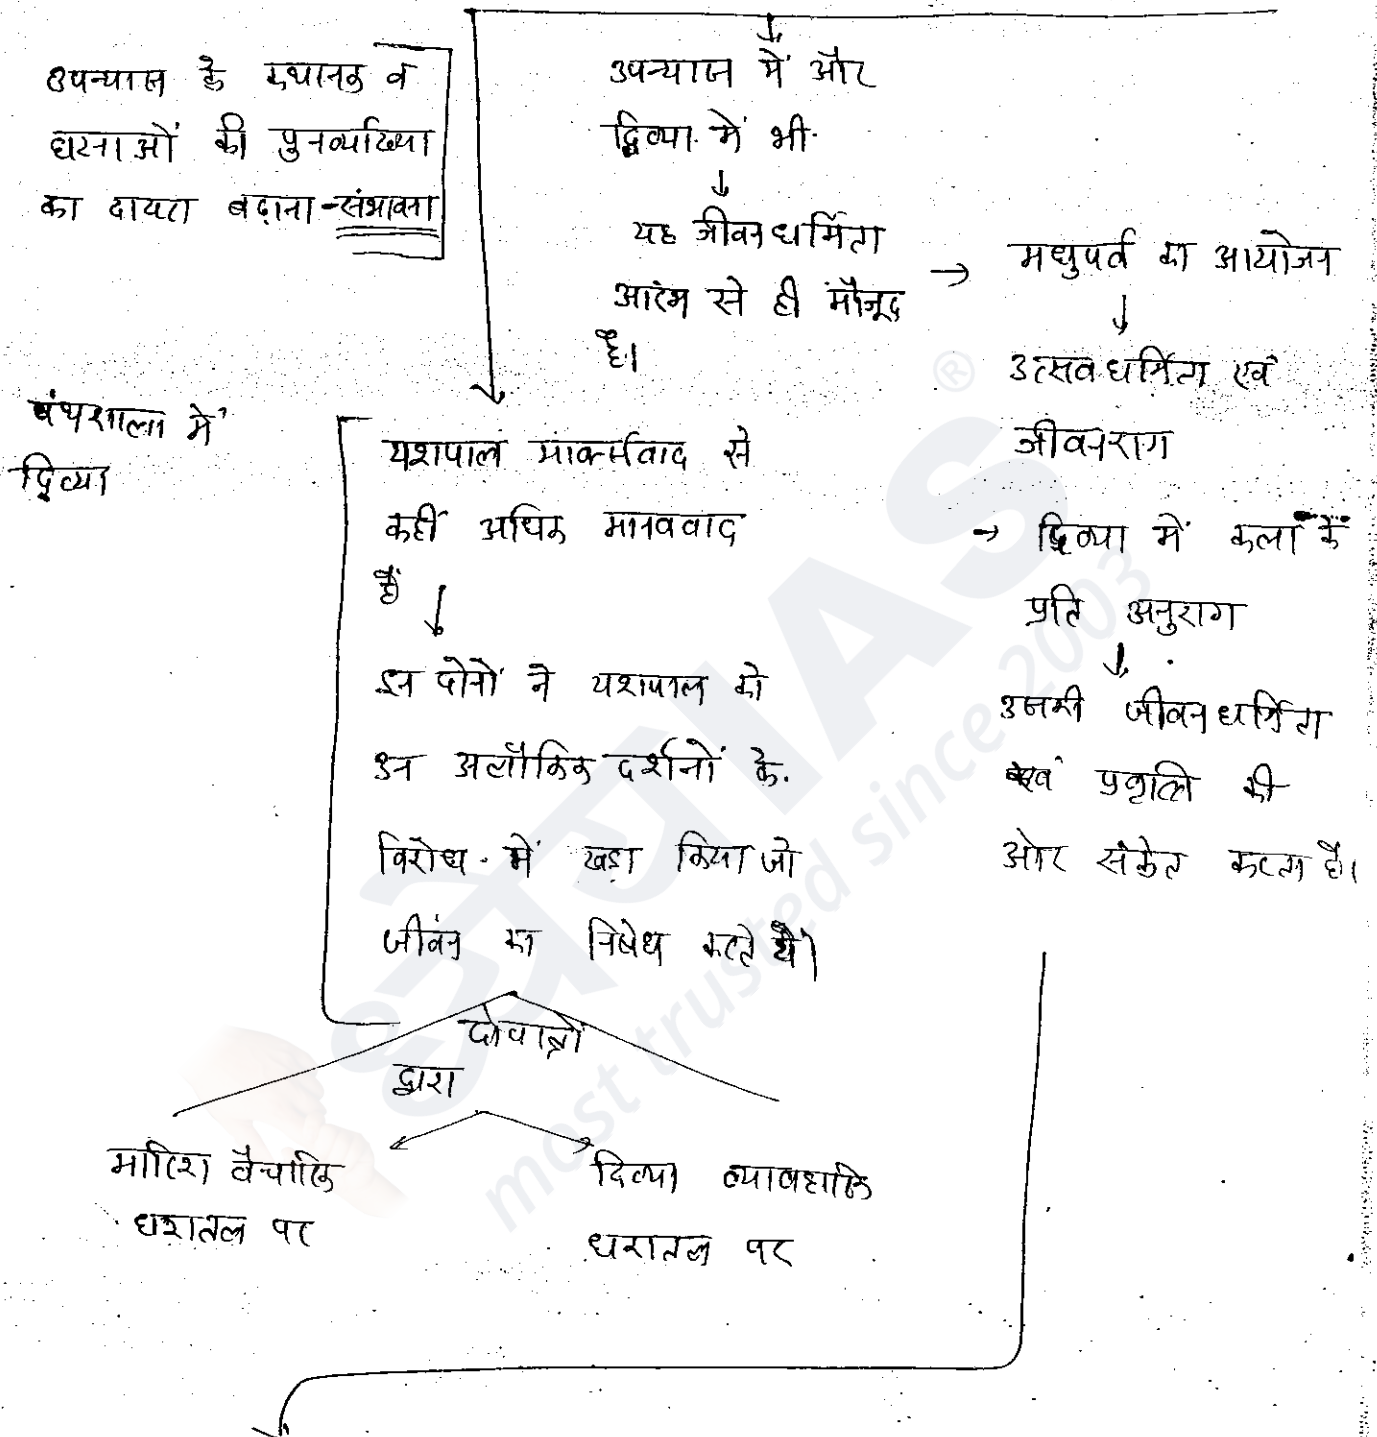 उपन्यास के कथानक व
घटनाओं की पुनर्व्याख्या
का दायरा बढ़ाना - संभावना
उपन्यास में और
दिव्या में भी
↓
यह जीवनधर्मिता
आरंभ से ही मौजूद
है।
→ मधुपर्व का आयोजन
↓
उत्सवधर्मिता एवं
जीवनराग
→ दिव्या में कला के
प्रति अनुराग
↓
उसकी जीवनधर्मिता
एवं प्रवृत्ति की
ओर संकेत करता है।
पंथशाला में
दिव्या
यशपाल मार्क्सवाद से
कहीं अधिक मानववाद
हैं ↓
इन दोनों ने यशपाल को
उन अलौकिक दर्शनों के
विरोध में खड़ा किया जो
जीवन का निषेध करते थे।
दो पात्रों
द्वारा
मारिश वैचारिक
धरातल पर
दिव्या व्यावहारिक
धरातल पर
श्रेय IAS
®
most trusted since 2003